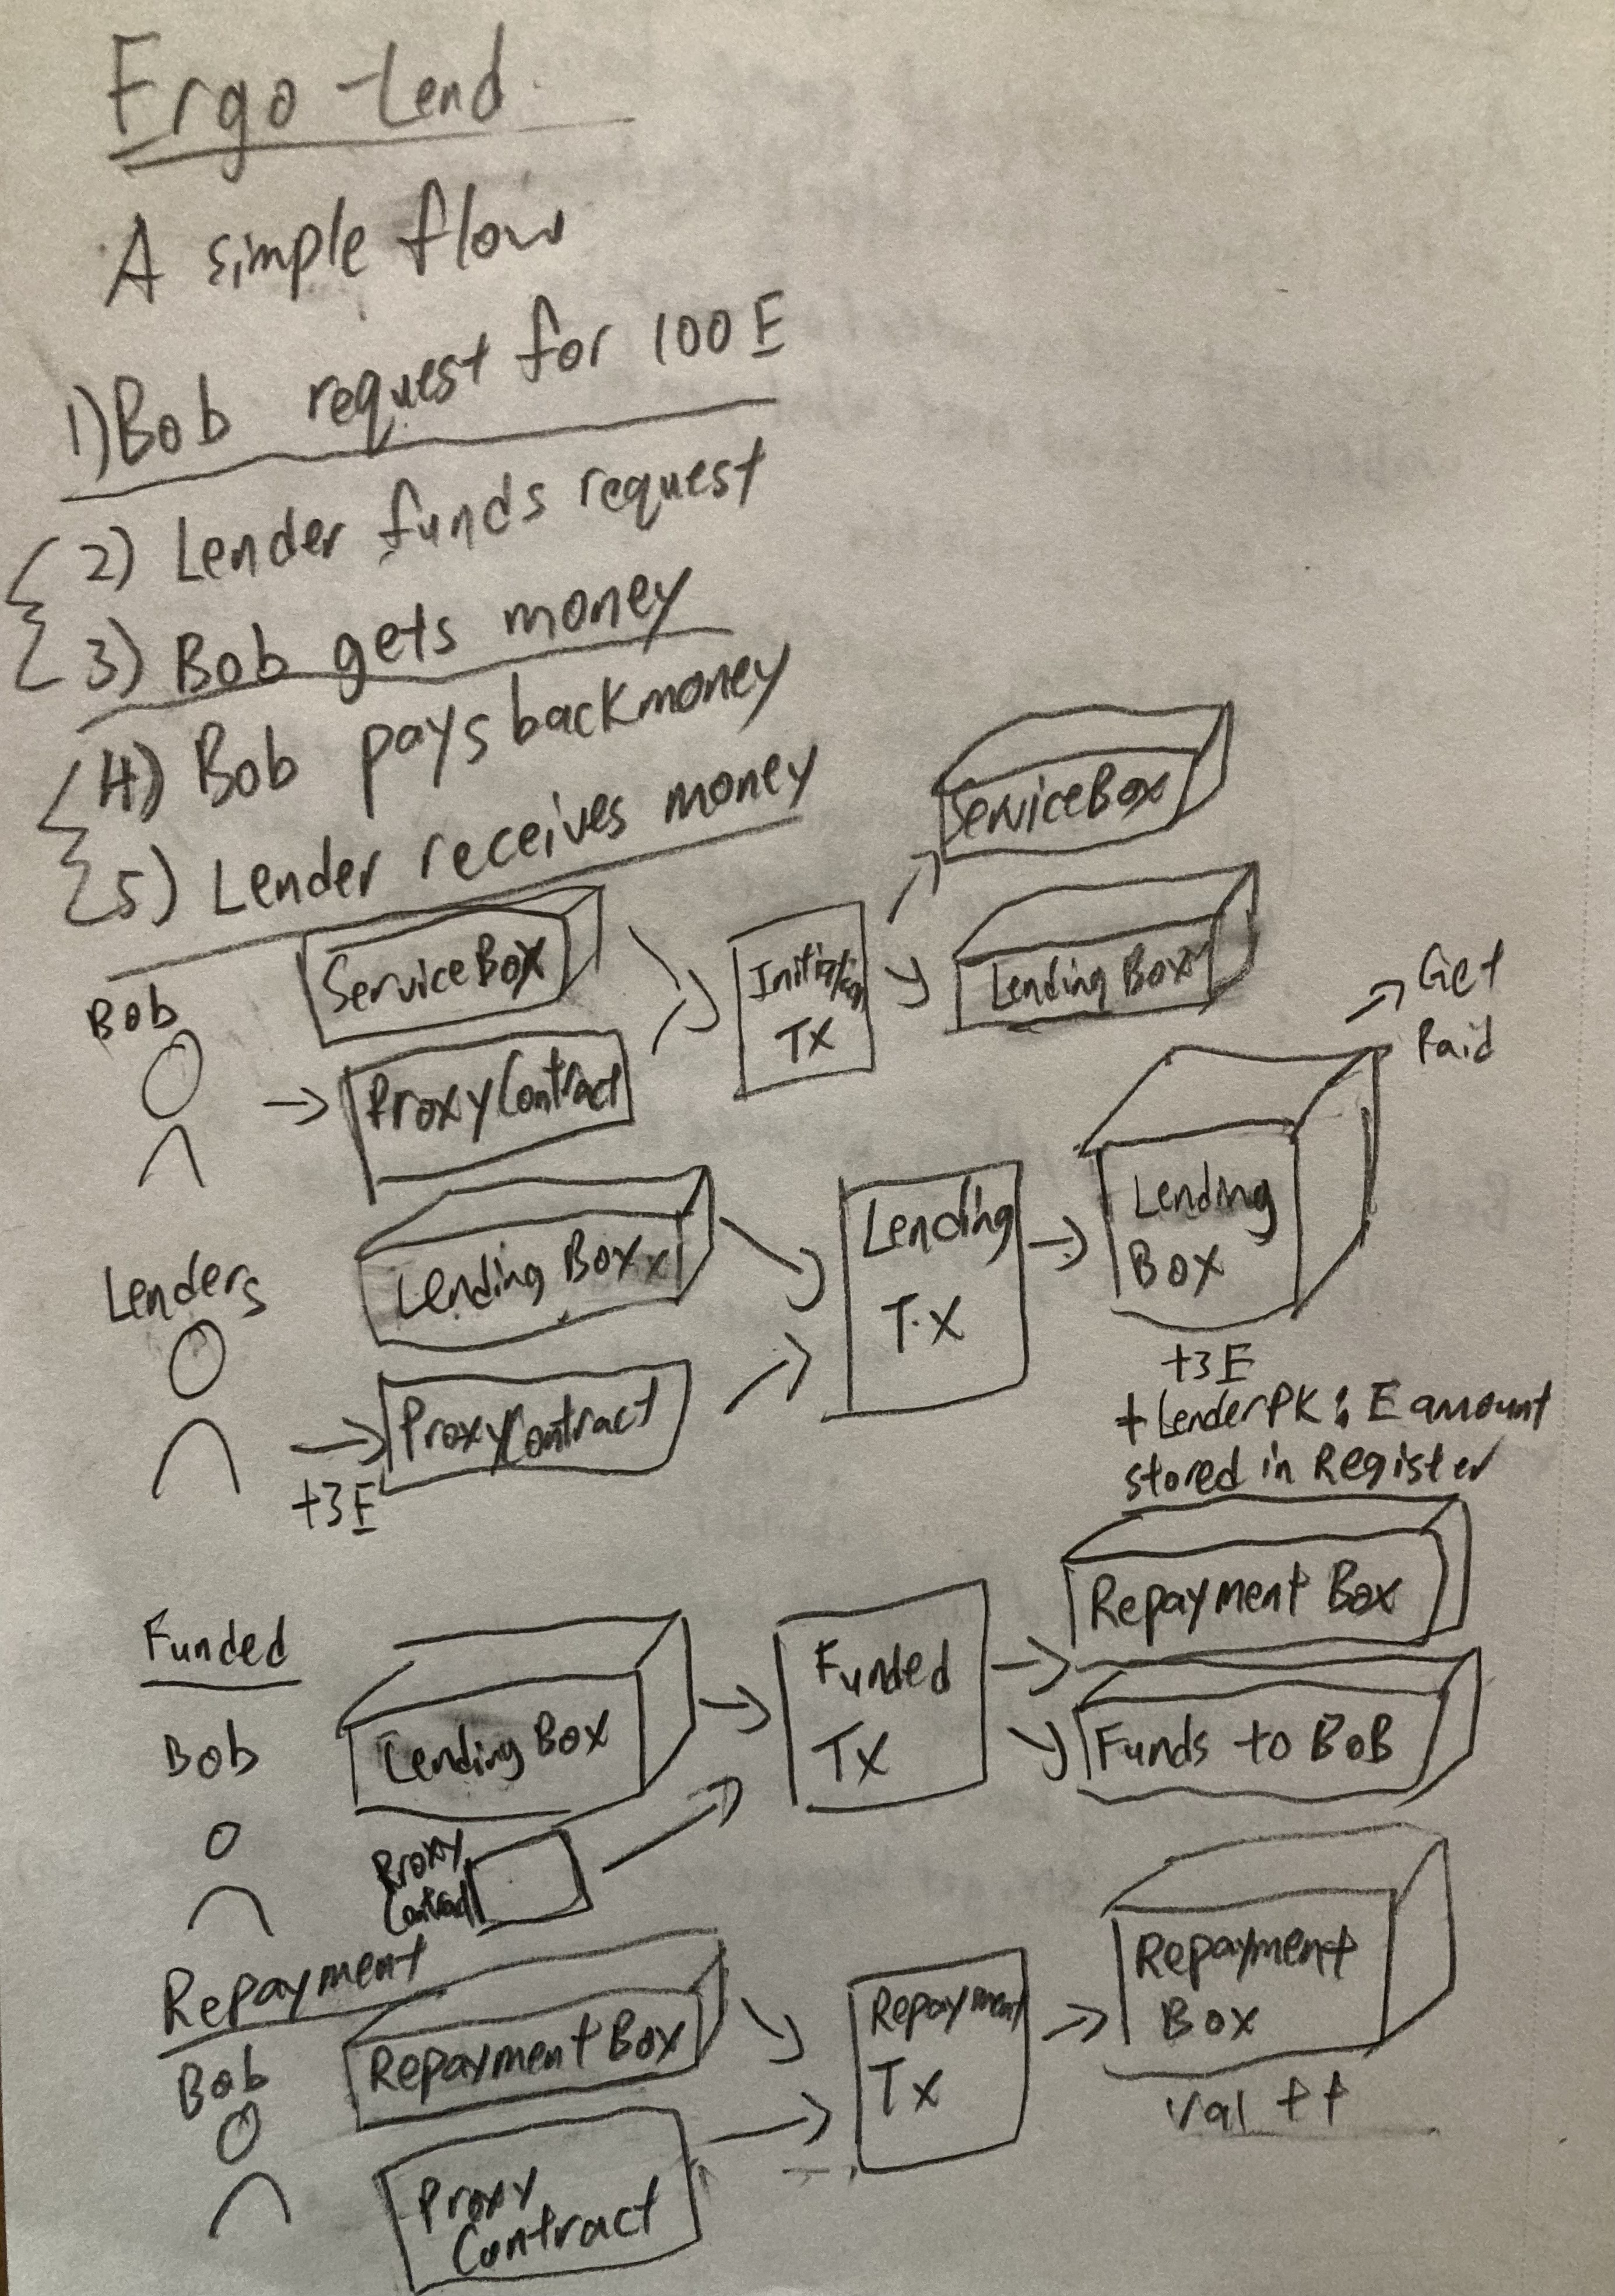 Ergo-Lend
A simple flow
1) Bob request for 100 E
2) Lender funds request
3) Bob gets money
4) Bob pays back money
5) Lender receives money
Bob
ServiceBox
Proxy Contract
TX
ServiceBox
Lending Box
Get
Paid
Lenders
Lending Box
Proxy Contract
+3E
Lending
TX
Lending
Box
+3E
+ LenderPK : E amount
stored in Register
Funded
Bob
Lending Box
Proxy
Contract
Funded
TX
Repayment Box
Funds to BoB
Repayment
Bob
Repayment Box
Proxy
Contract
Repayment
Tx
Repayment
Box
Val ++